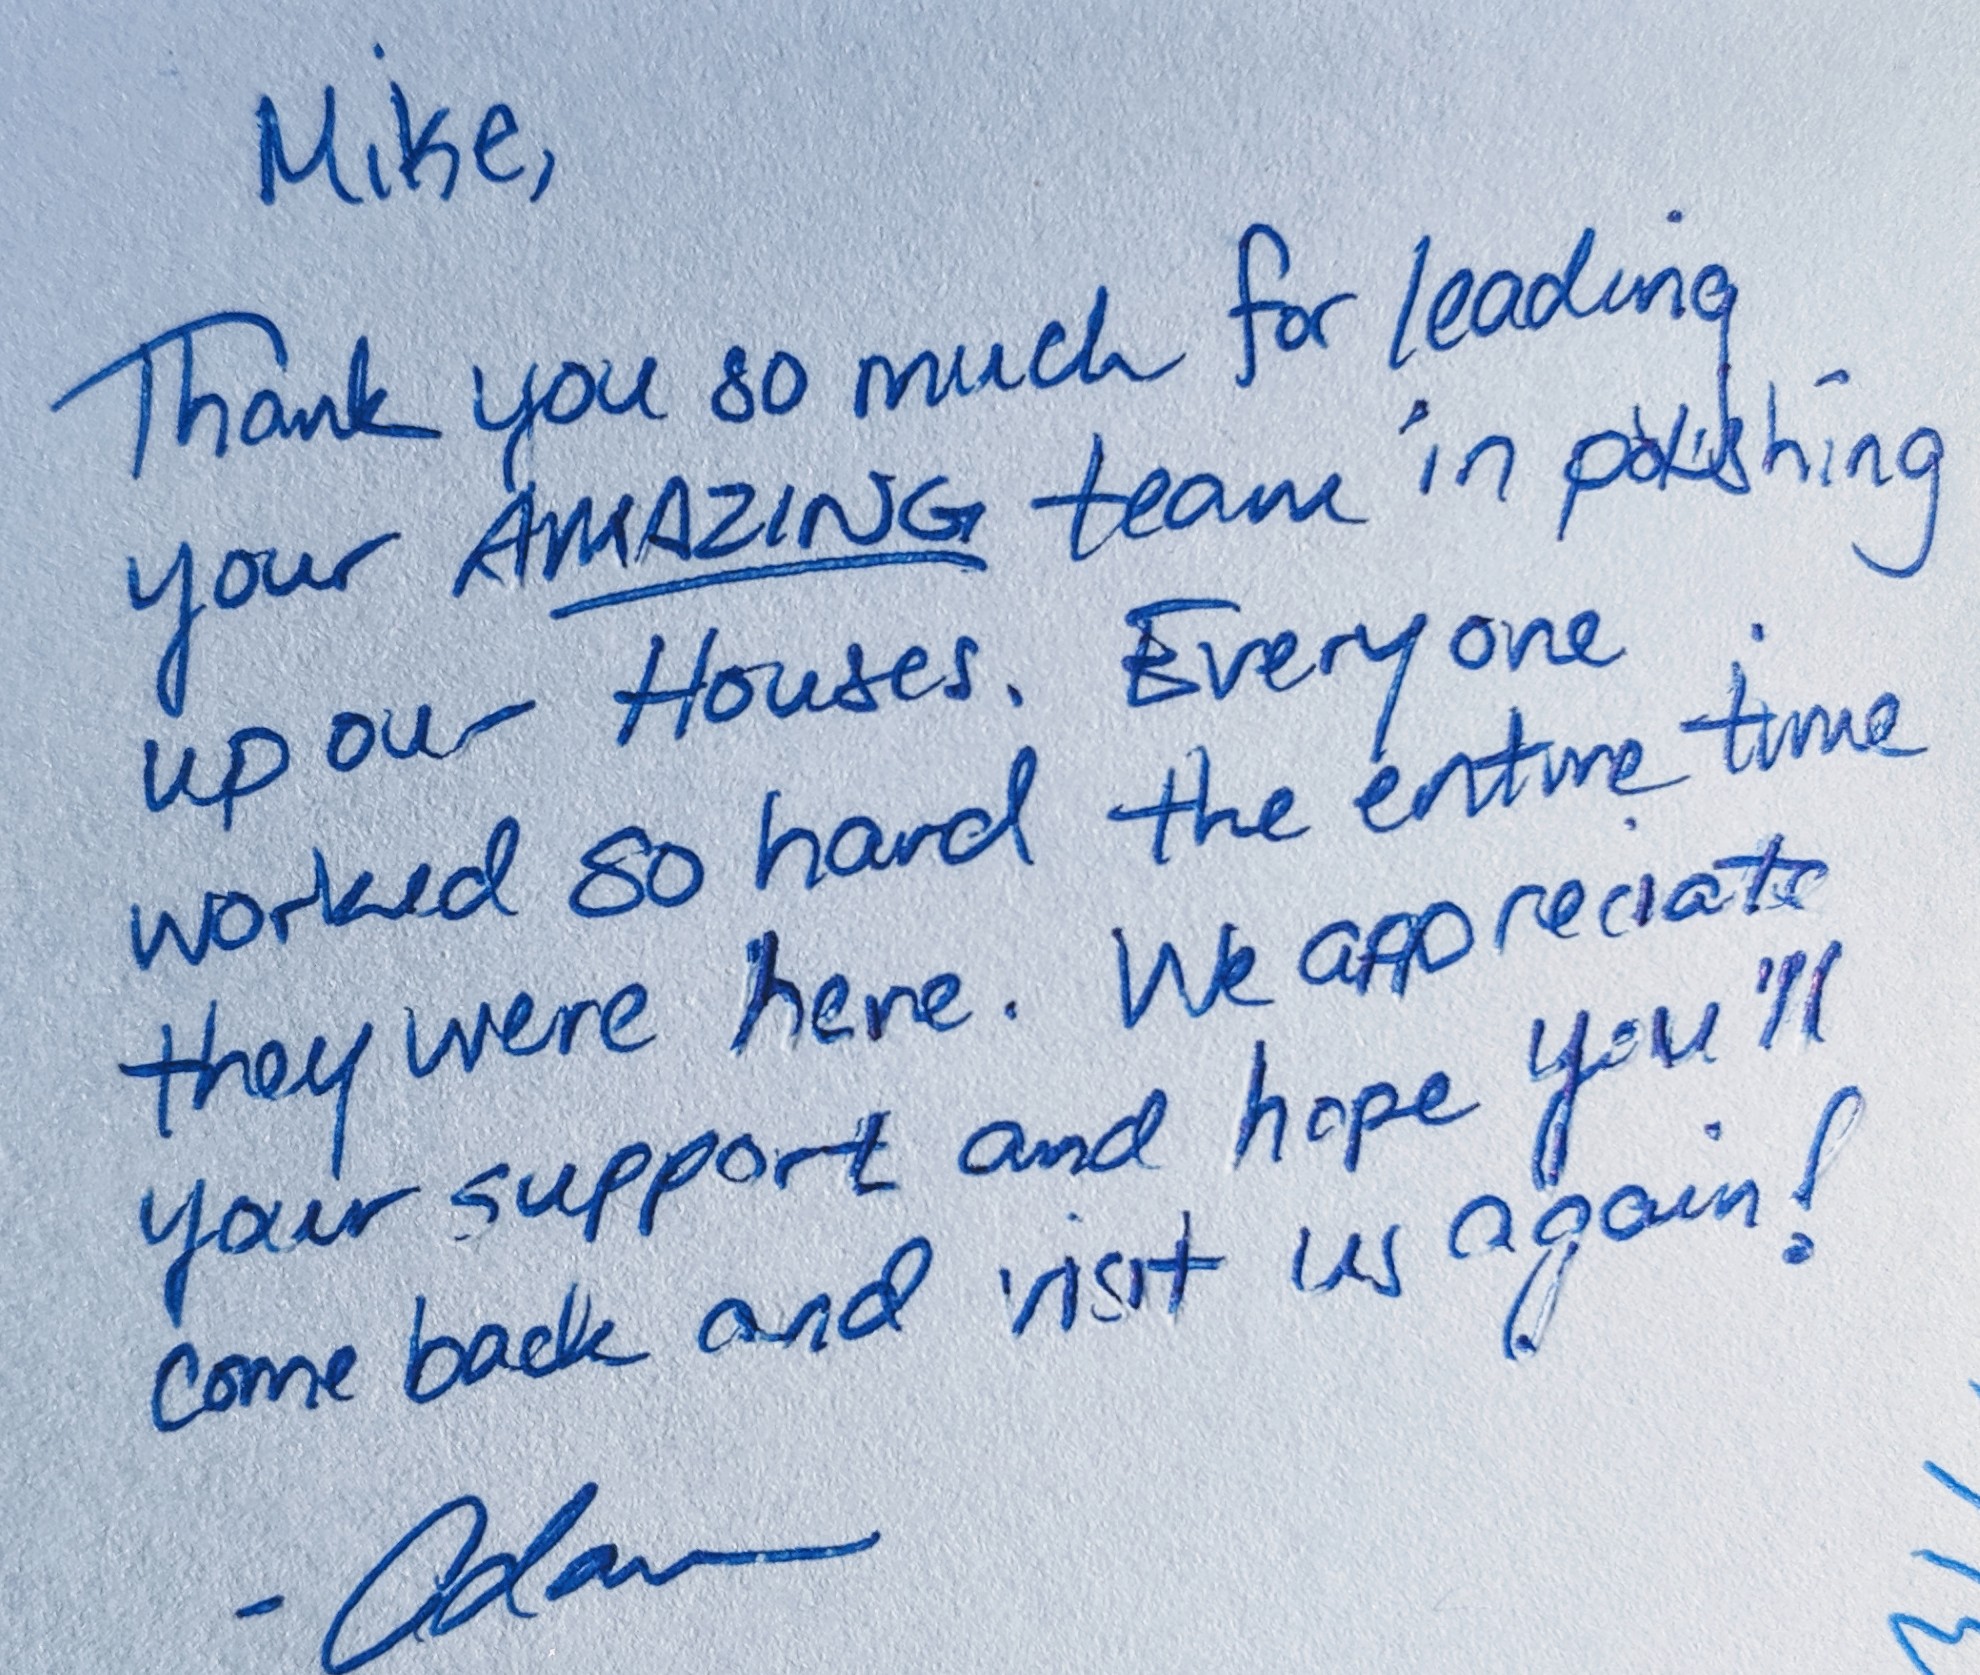 Mike,
Thank you so much for leading
your AMAZING team in polishing
up our Houses. Everyone
worked so hard the entire time
they were here. We appreciate
your support and hope you'll
come back and visit us again!
- Adam